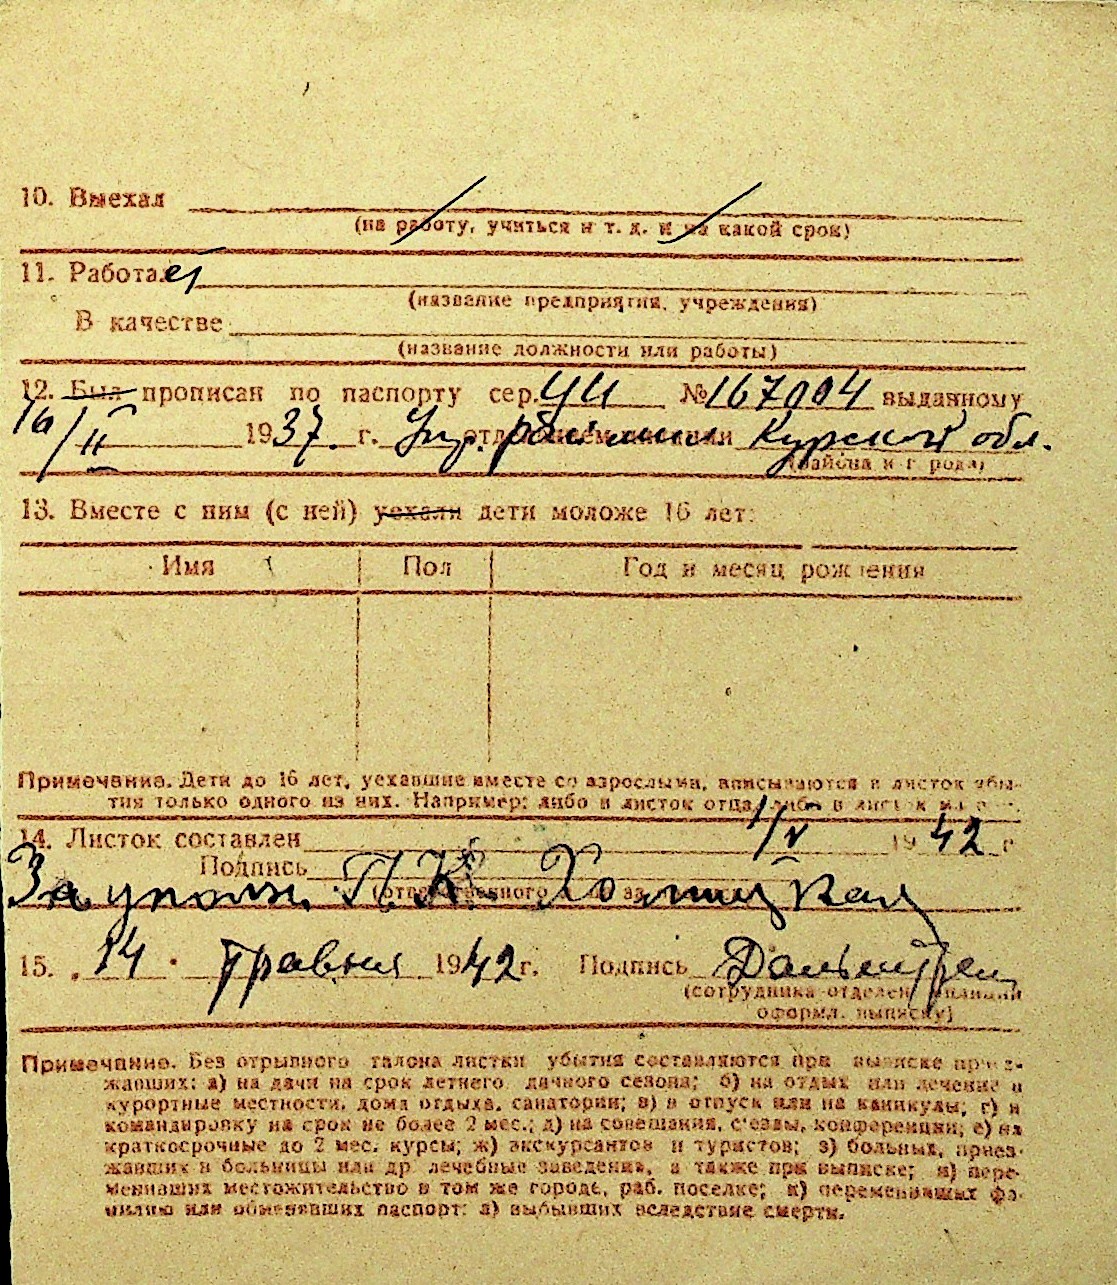 10. Выехал
(на работу, учиться и т. д. и на какой срок)
11. Работает
(название предприятия, учреждения)
В качестве
(название должности или работы)
12. Был прописан по паспорту сер. УИ № 167004 выданному
16/II 1937. г. Упр. отделением милиции Курской обл.
(района и города)
13. Вместе с ним (с ней) уехали дети моложе 16 лет:
Имя Пол Год и месяц рождения
Примечание. Дети до 16 лет, уехавшие вместе со взрослыми, вписываются в листок убы-
тия только одного из них. Например: либо в листок отца, либо в листок
14. Листок составлен 1/V 1942 г
Подпись
(ответственного за
За уполн. П. К. Холмицкая
15. 14 травня 1942 г. Подпись
(сотрудника отделен. милиции
оформл. выписку)
Примечание. Без отрывного талона листки убытия составляются при выписке приез-
жавших: а) на дачи на срок летнего дачного сезона; б) на отдых или лечение в
курортные местности, дома отдыха, санатории; в) в отпуск или на каникулы; г) в
командировку на срок не более 2 мес.; д) на совещания, с'езды, конференции; е) на
краткосрочные до 2 мес. курсы; ж) экскурсантов и туристов; з) больных, приез-
жавших в больницы или др. лечебные заведения, а также при выписке; и) пере-
менивших местожительство в том же городе, раб. поселке; к) переменивших фа-
милию или обменявших паспорт; л) выбывших вследствие смерти.